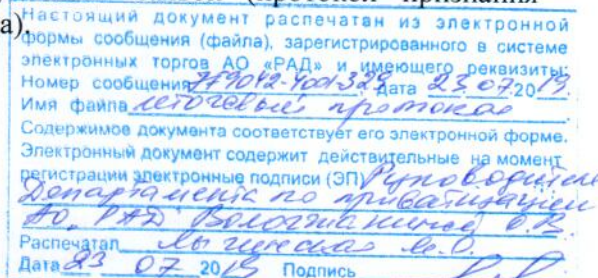 (протокол признания
а).
Настоящий документ распечатан из электронной
формы сообщения (файла), зарегистрированного в системе
электронных торгов АО «РАД» и имеющего реквизиты:
Номер сообщения Дата 23.07.2019.
Имя файла итоговый протокол
Содержимое документа соответствует его электронной форме.
Электронный документ содержит действительные на момент
регистрации электронные подписи (ЭП) Руководителя
Департамента по приватизации
АО РАД О.В.
Распечатал
Дата 23 07 2019 Подпись